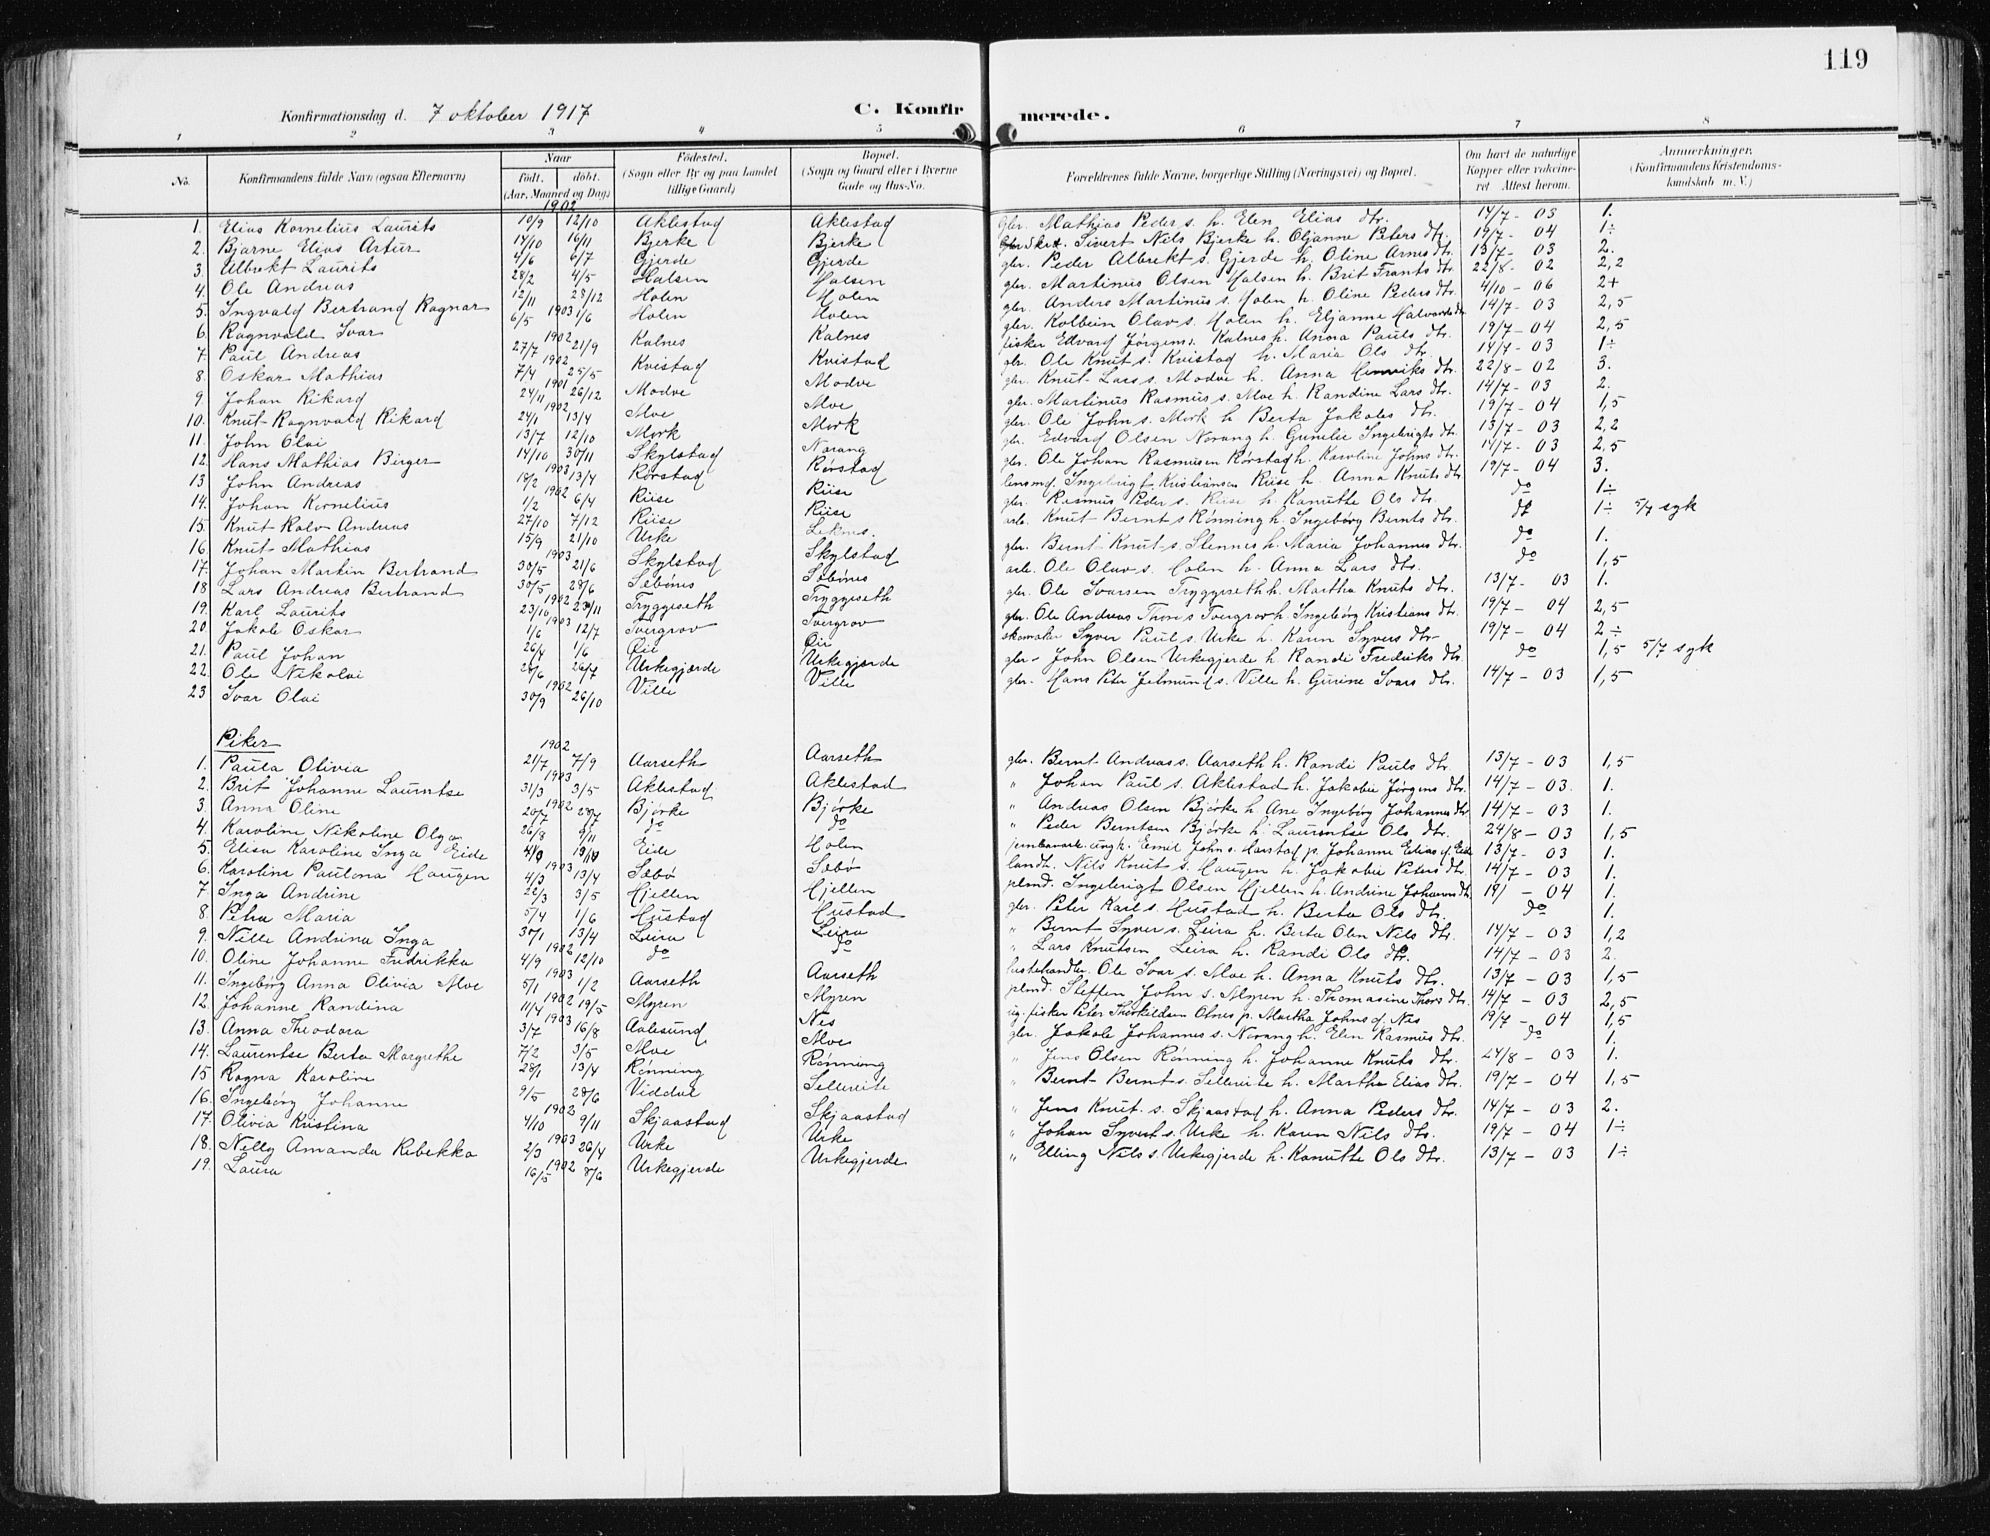 119
Konfirmationsdag d. 7 oktober 1917 C. Konfirmerede.
1 2 3 4 5 6 7 8
No. Konfirmandens fulde Navn (ogsaa Efternavn) Naar født. døbt. (Aar, Maaned og Dag) Fødested. (Sogn eller By og paa Landet tillige Gaard) Bopæl. (Sogn og Gaard eller i Byerne Gade og Hus-No. Forældrenes fulde Navne, borgerlige Stilling (Næringsvei) og Bopæl. Om havt de naturlige Kopper eller vakcineret Attest herom. Anmærkninger. (Konfirmandens Kristendomskundskab m. V.)
1902
1. Elias Kornelius Laurits 10/9 12/10 Aklestad Aklestad Gbr. Mathias Peder s. h. Elen Elias dtr. 14/7 - 03 1.
2. Bjarne Elias Artur 14/10 16/11 Bjerke Bjerke Sivert Nils Bjerke h. Oljanne Peters dtr. 19/7 - 04 1÷
3. Albrekt Laurits 4/6 6/7 Gjerde Gjerde gbr. Peder Albrekt s. Gjerde h. Oline Arnes dtr. 13/7 - 03 2.
4. Ole Andreas 28/2 4/5 Halsen Halsen gbr. Martinus Olsen Halsen h. Brit Frants dtr. 22/8 - 02 2,2
5. Ingvald Bertrand Ragnar 12/11 28/12 Holen Holen gbr. Anders Martinus s. Holen h. Oline Peders dtr. 4/10 - 06 2+
6. Ragnvald Ivar 6/5 1903 1/6 Holen Holen gbr. Kolbein Olav s. Holen h. Eljanne Halvards dtr. 14/7 - 03 2,5
7. Paul Andreas 27/7 1902 21/9 Kalnes Kalnes fisker Edvard Jørgen s. Kalnes h. Anna Pauls dtr. 19/7 - 04 2,5
8. Oskar Mathias 7/4 1902 25/5 Kvistad Kvistad gbr. Ole Knut s. Kvistad h. Maria Ols dtr. 14/7 - 03 1÷
9. Johan Rikard 24/11 1901 26/12 Modve Modve gbr. Knut Lars s. Modve h. Anna Henriks dtr. 22/8 - 02 3.
10. Knut Ragnvald Rikard 24/1 1902 13/4 Moe Moe gbr. Martinus Rasmus s. Moe h. Randine Lars dtr. 14/7 - 03 2.
11. John Olai 13/7 12/10 Mork Mork gbr. Ole John s. Mork h Berta Jakobs dtr. 19/7 - 04 1,5
12. Hans Mathias Birger 14/10 30/11 Skylstad Norang gbr. Edvard Olsen Norang h. Gunelie Ingebrigts dtr. 13/7 - 03 2,2
13 John Andreas 18/2 1903 13/4 Rørstad Rørstad gbr. Ole Johan Rasmussen Rørstad h. Karoline Johns dtr. 14/7 - 03 2,5
14. Johan Kornelius 1/2 1902 6/4 Riise Riise lensmd. Ingebrigt Kristiansen Riise h. Anna Knuts dtr 19/7 - 04 3.
15. Knut Kalv Andreas 27/10 7/12 Riise Riise gbr. Rasmus Peder s. Riise h. Kanutte Ols dtr. do 1÷
16. Knut Mathias 15/9 21/10 Urke Leknes. arb. Knut Bernt s Rønning h. Ingeborg Bernts dtr. do 1÷ 5/7 syk
17. Johan Martin Bertrand 30/5 1903 21/6 Skylstad Skylstad gbr. Bernt Knut s. Stennes h. Maria Johannes dtr. do 1.
18 Lars Andreas Bertrand 30/5 28/6 Sæbønes Sæbønes arb. Ole Olav s. Holen h. Anna Lars dtr. do 1,5
19. Karl Laurits 23/10 1902 23/11 Tryggeseth Tryggeseth gbr. Ole Ivarsen Tryggeseth h. Martha Knuts dtr. 13/7 - 03 1.
20. Jakob Oskar 1/6 1903 12/7 Tvergrov Tvergrov gbr. Ole Andreas Thore s Tvergrov h. Ingeborg Kristians dtr. 19/7 - 04 2,5
21. Paul Johan 26/4 1/6 Øie Øie skomaker Syver Paul s. Urke h. Karen Syvers dtr 19/7 - 04 2÷
22. Ole Nikolai 28/6 26/7 Urkegjærde Urkegjærde gbr. John Olsen Urkegjerde h. Randi Fredriks dtr. do 1,5 5/7 syk
23 Ivar Olai 30/9 1902 26/10 Ville Ville gbr. Hans Peter Jetmund s. Ville h. Gurine Ivars dtr. 14/7 - 03 1,5
Piker
1. Paula Olivia 21/7 1902 7/9 Aarseth Aarseth gbr. Bernt Andreas s. Aarseth h. Randi Pauls dtr. 13/7 - 03 1,5
2. Brit Johanne Laurentse 31/3 1903 3/5 Aklestad Aklestad " Johan Paul s. Aklestad h. Jakobie Jørgens dtr. 14/7 - 03. 1.
3. Anna Oline 20/7 1902 28/7 Bjørke Bjørke " Andreas Olsen Bjørke h. Ane Ingeborg Johannes dtr 14/7 - 03 1.
4. Karoline Nikoline Olga 26/8 9/11 do do " Peder Berntsen Bjørke h. Laurentse Ols dtr. 24/8 - 03 1,5
5. Elisa Karoline Inga Eide 4/9 19/10 Eide Holen Emil John s. Harstad p. Johanne Elias d. Eide 13/7 - 03 1.
6. Karolina Paulena Haugen 4/3 1903 13/4 Sæbø Sæbø landh. Nils Knut s. Haugen h. Jakobie Peters dtr. 14/7 - 03 1.
7. Inga Andrine 22/3 3/5 Hjellen Hjellen plmd. Ingebrigt Olsen Hjellen h. Andrine Johannes dtr. 19/ - 04 1.
8. Petra Maria 5/4 1/6 Hustad Hustad gbr. Peter Karl s. Hustad h. Berta Ols dtr. do 1.
9. Nille Andrina Inga 30/1 13/4 Leira Leira " Bernt Syver s. Leira h. Berta Olen Nils dtr. 14/7 - 03 1,2
10. Oline Johanne Fredrikka 4/9 1902 12/10 do do " Lars Knutsen Leira h. Randi Ols dtr. 14/7 - 03 2.
11. Ingeborg Anna Olivia Moe 5/1 1903 1/2 Aarseth Aarseth hestehandler Ole Ivar s. Moe h. Anna Knuts dtr. 13/7 - 03 1,5
12. Johanne Randina 11/4 1902 19/5 Myren Myren plmd. Steffen John s. Myren h. Thomasine Thors dtr. 14/7 - 03 2,5
13. Anna Theodora 3/7 1903 16/8 Aalesund Nes ug. fisker Peter Thorkildsen Olnes p. Martha Johns d. Nes 19/7 - 04 1,5
14. Laurentse Berta Margrethe 7/2 3/5 Moe Moe gbr. Jakob Johannes s. Norang h. Elen Rasmus dtr. do 1.
15 Ragna Karoline 28/1 13/4 Rønning Rønning " Jens Olsen Rønning h. Johanne Knuts dtr. 24/8 - 03 1.
16. Ingeborg Johanne 9/5 28/6 Viddal Sellereite " Bernt Bernt s. Sellereite h. Martha Elias dtr. 19/7 - 04 1,5
17. Olivia Kristina 4/10 1902 9/11 Skjaastad Skjaastad " Jens Knut s. Skjaastad h. Anna Peders dtr. 14/7 - 03 2.
18. Nelly Amanda Rebekka 2/3 1903 26/4 Urke Urke " Johan Syvert s. Urke h. Karen Nils dtr. 19/7 - 04 1÷
19. Laura 16/5 1902 8/6 Urkegjerde Urkegjerde " Elling Nils s. Urkegjerde h. Kanutte Ols dtr. 13/7 - 03 1÷